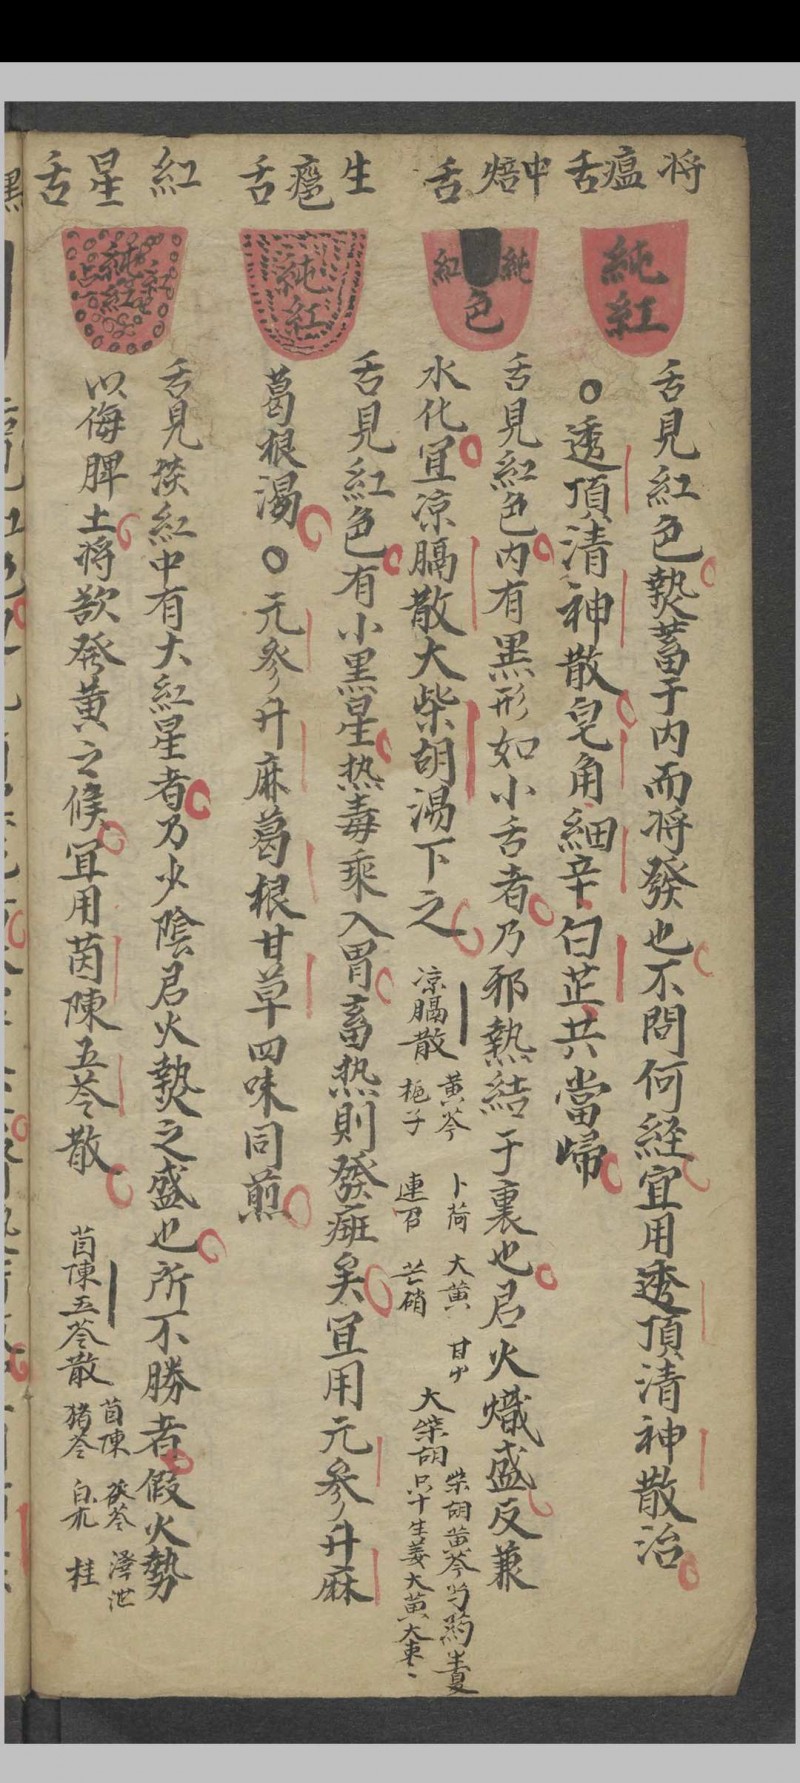 将瘟舌
純紅
舌見紅色𤍠蓄于内而将發也不問何経宜用透頂清神散治
○透頂清神散皂角細辛白芷共當㱕
中焙舌
純紅
色
舌見紅色内有黒形如小舌者乃邪熱結于裏也君火熾盛反兼
水化宜凉膈散大柴胡湯下之
凉膈散
黄芩 卜荷 大黄 甘中
梔子 連召 芒硝
大柴胡
柴胡黄芩芍药半夏
只卜生姜大黄大枣
生瘢舌
純紅
舌見紅色有小黒星热毒乘入胃畜热則發癍矣宜用元参升麻
葛根湯○元参升麻葛根甘草四味同煎
紅星舌
純紅
紅点
舌見淡紅中有大紅星者乃少陰君火𤍠之盛也所不勝者假火勢
以侮脾土将欲發黄之候宜用茵陳五苓散
茵陳五苓散
茵陳 茯苓 澤泄
猪苓 白朮 桂
黒